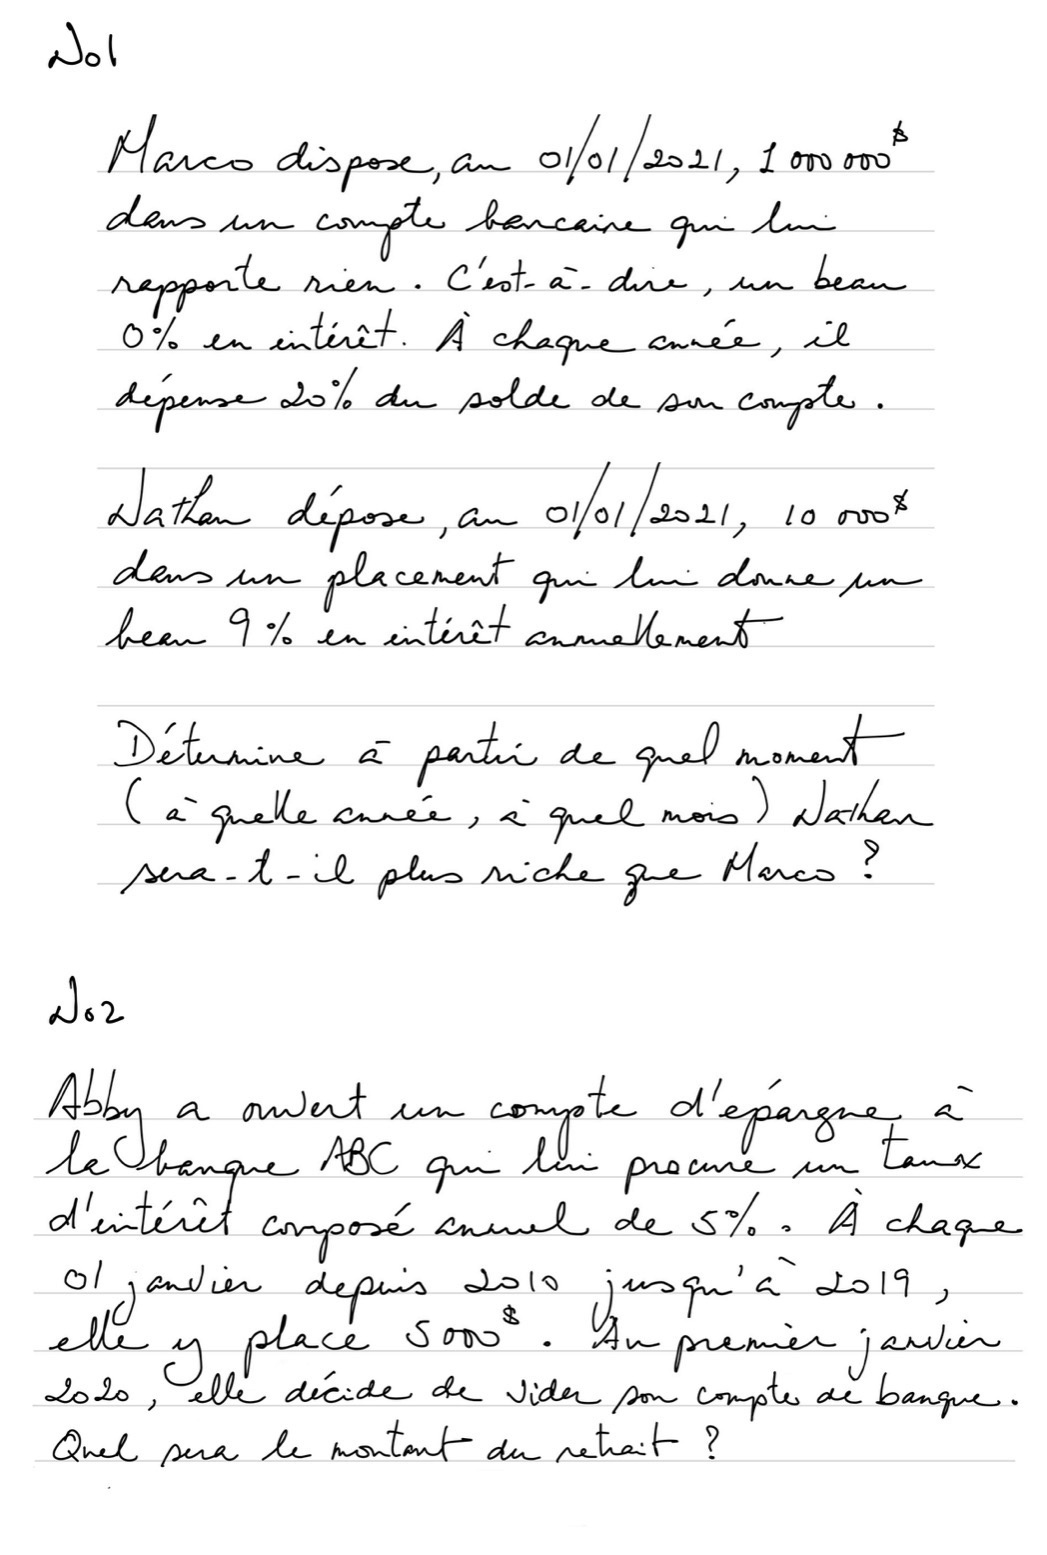 No1
Marco dispose, au 01/01/2021, 1 000 000$
dans un compte bancaire qui lui
rapporte rien. C'est-à-dire, un beau
0% en intérêt. À chaque année, il
dépense 20% du solde de son compte.
Nathan dépose, au 01/01/2021, 10 000$
dans un placement qui lui donne un
beau 9% en intérêt annuellement
Détermine à partir de quel moment
(à quelle année, à quel mois) Nathan
sera-t-il plus riche que Marco ?
No2
Abby a ouvert un compte d'épargne à
la banque ABC qui lui procure un taux
d'intérêt composé annuel de 5%. À chaque
01 janvier depuis 2010 jusqu'à 2019,
elle y place 5000$. Au premier janvier
2020, elle décide de vider son compte de banque.
Quel sera le montant du retrait ?